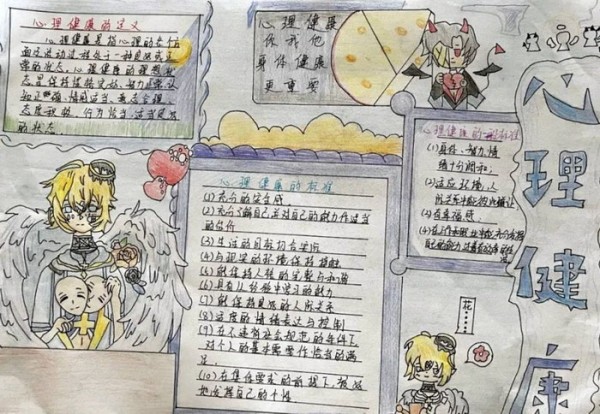 心理健康的定义
心理健康是指心理的各个方面
及活动过程处于一种良好或正
常的状态。心理健康的理想状
态是保持性格完好、智力正常、认
知正确、情感适当、意志合理、
态度积极、行为恰当、适应良好
的状态。
心理健康
你我他
身体健康
更重要
心理健康的标准
(1)充分的安全感
(2)充分了解自己并对自己的能力作适当
的估价
(3)生活的目标切合实际
(4)与现实的环境保持接触
(5)能保持人格的完整与和谐
(6)具有从经验中学习的能力
(7)能保持良好的人际关系
(8)适度的情绪表达与控制
(9)在不违背社会规范的条件下,
对个人的基本需要作恰当的满
足
(10)在集体要求的前提下,极好
地发挥自己的个性
心理健康的
(1)身体、智力、情
绪十分调和;
(2)适应环境,人
际关系中能彼此谦让
(3)有幸福感
花……
心理健康